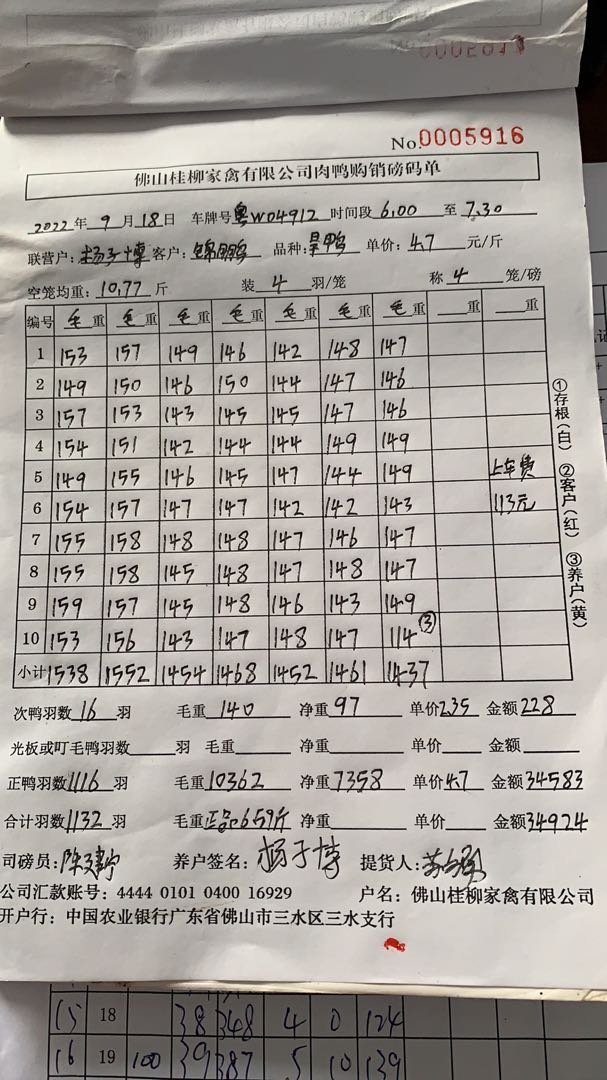 No.0005916
佛山桂柳家禽有限公司肉鸭购销磅码单
2022年 9 月 18 日 车牌号 粤W04912 时间段 6.00 至 7.30
联营户: 杨子博 客户: 锦鹏 品种: 旱鸭 单价: 4.7 元/斤
空笼均重: 10.77 斤 装 4 羽/笼 称 4 笼/磅
编号 毛重 毛重 毛重 毛重 毛重 毛重 毛重 重 重
1 153 157 149 146 142 148 147
2 149 150 146 150 144 147 146
3 157 153 143 145 145 147 146
4 154 151 142 144 144 149 149
5 149 155 146 145 147 144 149 上车费
6 154 157 147 147 142 142 143 113元
7 155 158 148 148 147 146 147
8 155 158 145 148 147 148 147
9 159 157 145 148 146 143 149
10 153 156 143 147 148 147 114 ③
小计 1538 1552 1454 1468 1452 1461 1437
①存根(白) ②客户(红) ③养户(黄)
次鸭羽数 16 羽 毛重 140 净重 97 单价 2.35 金额 228
光板或叮毛鸭羽数 羽 毛重 净重 单价 金额
正鸭羽数 1116 羽 毛重 10362 净重 7358 单价 4.7 金额 34583
合计羽数 1132 羽 毛重 正品6.59斤 净重 单价 金额 34924
司磅员: 养户签名: 杨子博 提货人:
公司汇款账号: 4444 0101 0400 16929 户名: 佛山桂柳家禽有限公司
开户行: 中国农业银行广东省佛山市三水区三水支行
15 18 38 348 4 0 124
16 19 100 39 387 5 10 139